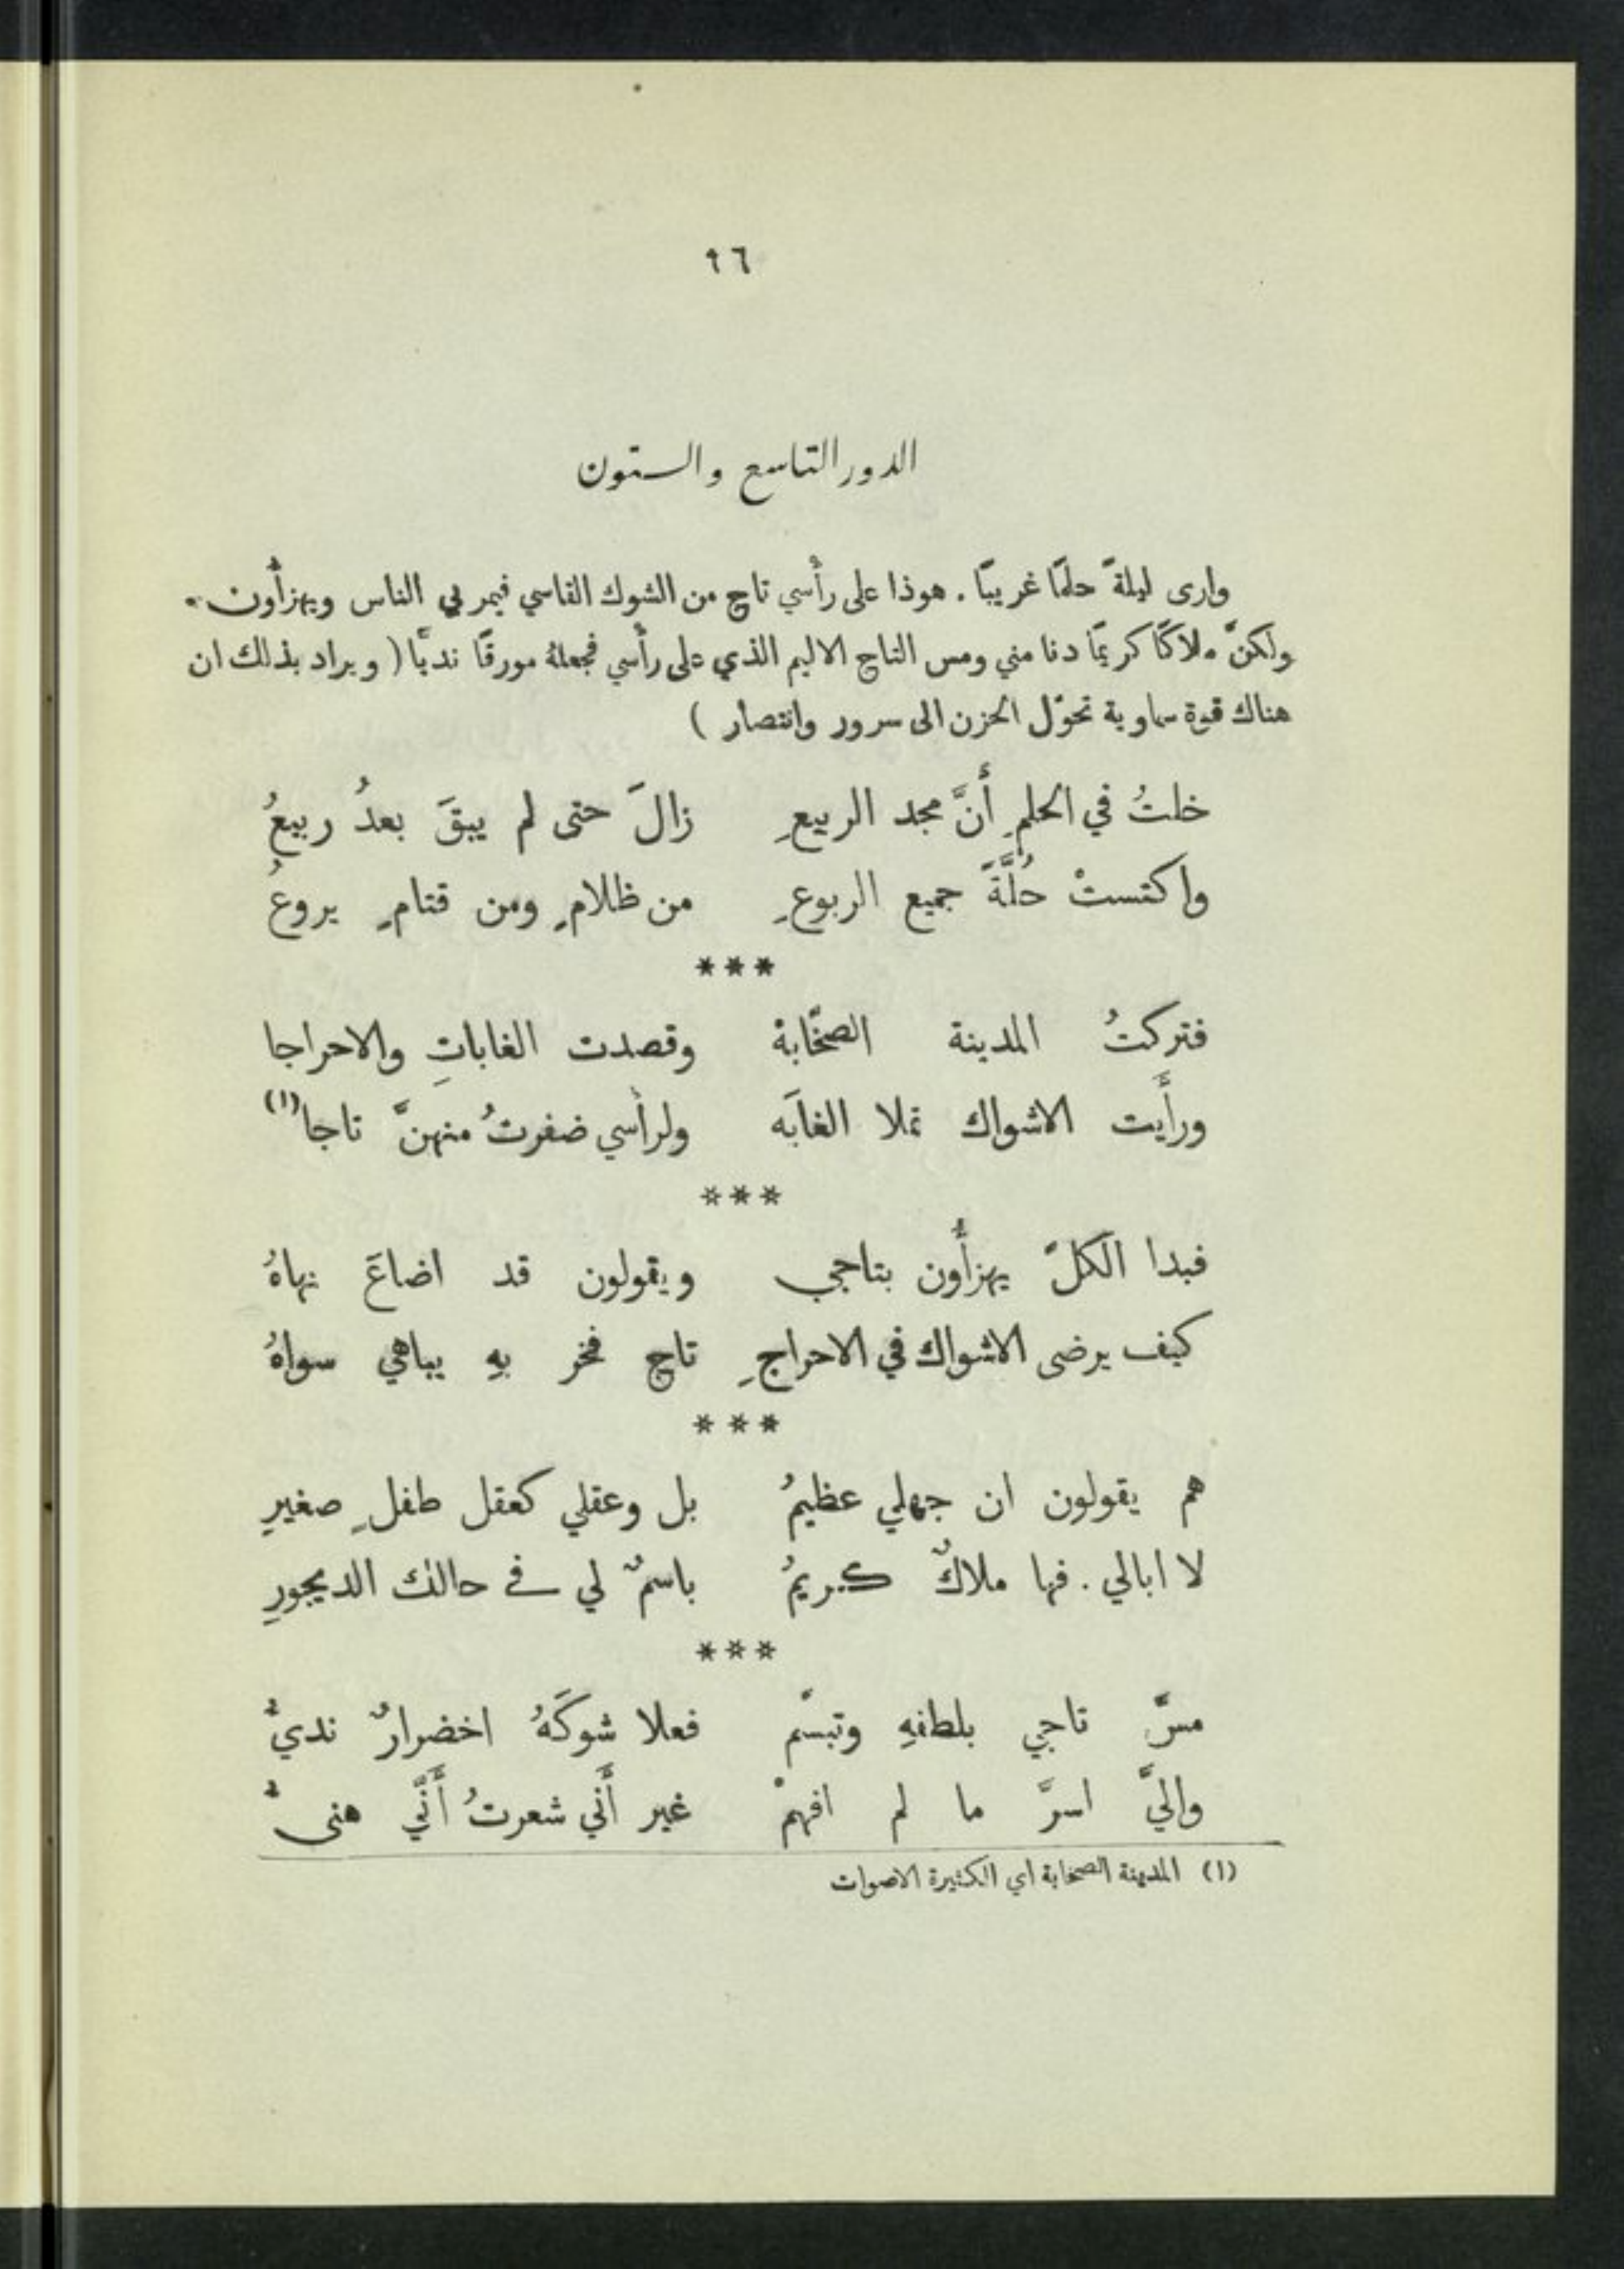 ٩٦
الدور التاسع والستون
وارى ليلةً حلمًا غريبًا . هوذا على رأسي تاج من الشوك القاسي فيمر بي الناس ويهزأون .
ولكنَّ ملاكًا كريمًا دنا مني ومس التاج الاليم الذي على رأسي فجعلهُ مورقًا نديًّا ( ويراد بذلك ان
هناك قوة سماوية تحوّل الحزن الى سرور وانتصار )
خلتُ في الحلمِ أَنَّ مجد الربيعِ زالَ حتى لم يبقَ بعدُ ربيعُ
واكتستْ حُلَّةً جميع الربوعِ من ظلامٍ ومن قتامٍ يروعُ
***
فتركتُ المدينة الصخَّابةْ وقصدت الغاباتِ والاحراجا
ورأَيت الاشواك تملا الغابَه ولرأسي ضفرتُ منهنَّ تاجا (١)
***
فبدا الكلّ يهزأُون بتاجي ويقولون قد اضاعَ نهاهُ
كيف يرضى الاشواك في الاحراجِ تاج فخر بهِ يباهي سواهُ
***
هم يقولون ان جهلي عظيمُ بل وعقلي كعقل طفلٍ صغيرِ
لا ابالي . فها ملاكٌ كريمُ باسمٌ لي في حالك الديجورِ
***
مسَّ تاجي بلطفهِ وتبسَّم فعلا شوكَهُ اخضرارٌ نديُّ
واليَّ اسرَّ ما لم افهمْ غير أَني شعرتُ أَنَّي هنىءُ
(١) المدينة الصخابة اي الكثيرة الاصوات